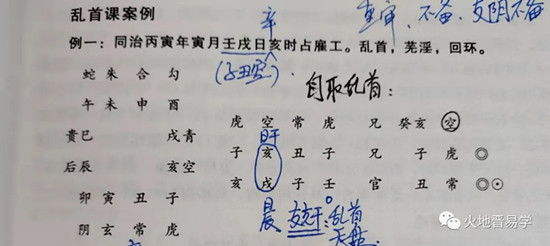 乱首课案例
重审，不备，支阴不备
例一：同治丙寅年寅月壬戌日亥时占雇工。乱首，芜淫，回环。
(子丑空)
自取乱首：
蛇 朱 合 勾
午 未 申 酉
貴巳 戌青
后辰 亥空
卯 寅 丑 子
阴 玄 常 虎
虎 空 常 虎 兄 癸亥 空
日干
子 亥 丑 子 兄 子 虎 ◎
亥 戌 子 壬 官 丑 常 ◎⊙
晨 支 干：乱首
天盘
火地晋易学